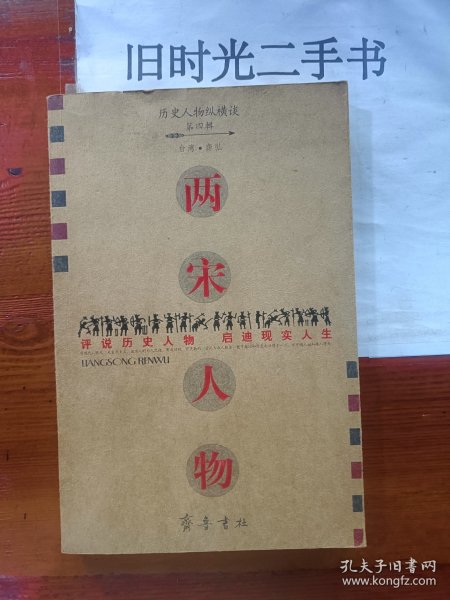 旧时光二手书
历史人物纵横谈
第四辑
台湾·龚弘
两
宋
评说历史人物 启迪现实人生
LIANGSONG RENWU
人
物
齐鲁书社
孔夫子旧书网
www.kongfz.com